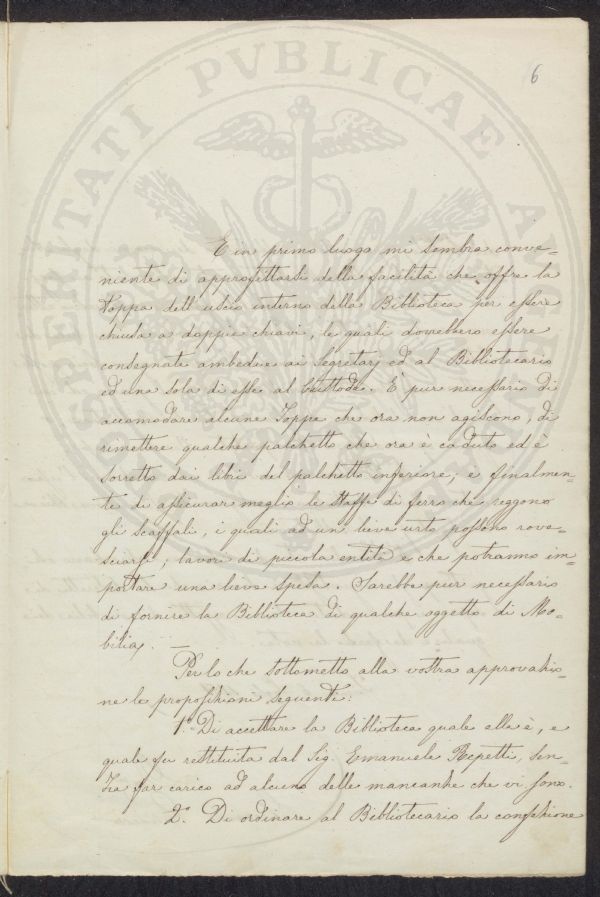 6
PROSPERITATI PVBLICAE AVGENDAE
E in primo luogo mi sembra conve=
niente di approfittarsi della facilità che offre la
toppa dell'uscio interno della Biblioteca per essere
chiusa a doppie chiavi, le quali dovrebbero essere
consegnate ambedue ai Segretarj ed al Bibliotecario
ed una sola di esse al Custode. È pur necessario di
accomodare alcune Toppe che ora non agiscono, di
rimettere qualche palchetto che ora è caduto ed è
sorretto dai libri del palchetto inferiore; e finalmen=
te di assicurar meglio le staffe di ferro che reggono
gli scaffali, i quali ad un lieve urto possono rove=
sciarsi; lavori di piccola entità e che potranno im=
portare una lieve spesa. Sarebbe pur necessario
di fornire la Biblioteca di qualche oggetto di Mo=
bilia. —
Per lo che sottometto alla vostra approvazio=
ne le proposizioni seguenti:
1.° Di accettare la Biblioteca quale ella è, e
quale fu restituita dal Sig. Emanuele Repetti, sen=
za far carico ad alcuno delle mancanze che vi sono.
2.° Di ordinare al Bibliotecario la confezione